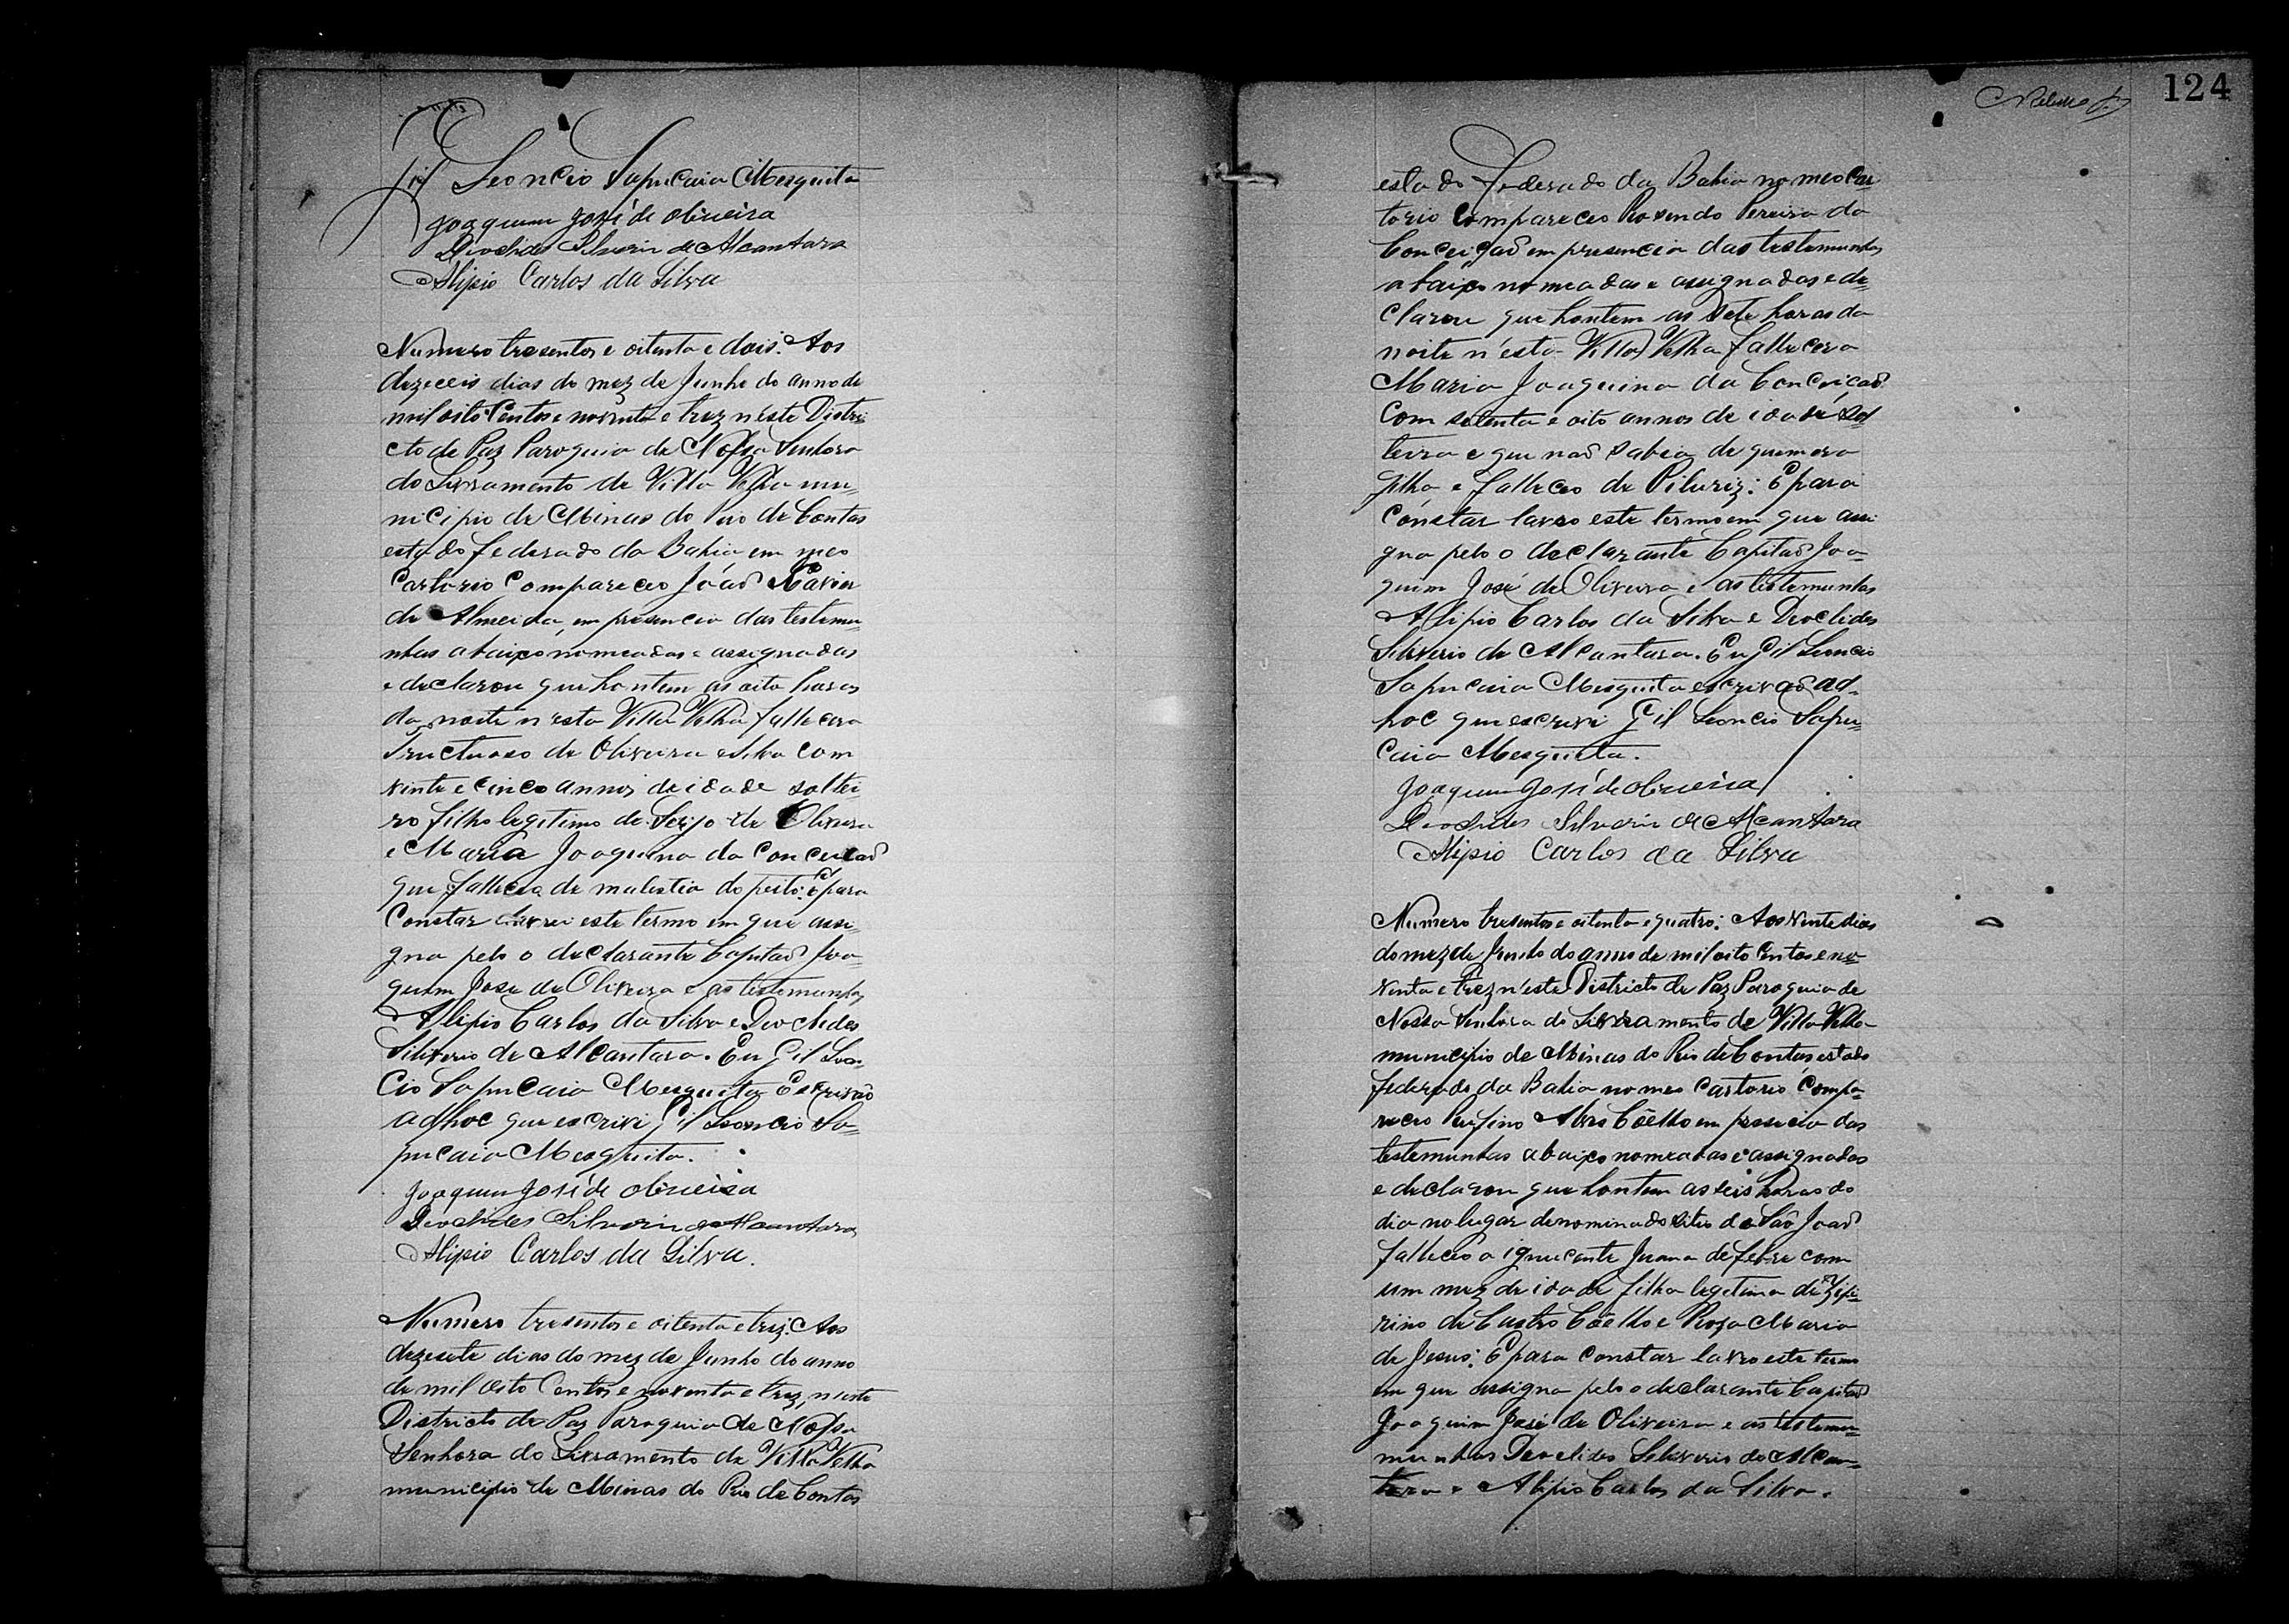 Gil Leoncio Sapucaia Mesquita
Joaquim José de Oliveira
Deoclides Silverio de Alcantara
Alipio Carlos da Silva
Numero tresentos e oitenta e dois. Aos
dezeceis dias do mez de Junho do anno de
mil oito Centos e noventa e trez n'este Distri-
cto de Paz Paroquia de Nossa Senhora
do Livramento de Villa Velha mu-
nicipio de Minas do Rio de Contas
estado federado da Bahia em meo
Cartorio Compareceo João Xavier
de Almeida, em presencia das testemu-
nhas abaixo nomeadas e assegnadas
e declarou que hontem as oito horas
da noite n'esta Villa Velha fallecera
Fructuoso de Oliveira e Silva com
vinte e cinco annos de idade soltei-
ro filho legitimo de Serjo de Oliveira
e Maria Joaquina da Conceicao
que falleceo de malestia do peito: E para
Constar lavrei este termo em que assi-
gna pelo o declarante Capitaõ Joa-
quim José de Oliveira e as testemunhas
Alipio Carlos da Silva e Deoclides
Silverio de Alcantara. Eu Gil Leon-
Cio Sapucaia Mesquita Escrivão
adhoc que escrivi Gil Leoncio Sa-
pucaia Mesquita.
Joaquim José de Oliveira
Deoclides Silverio de Alcantara
Alipio Carlos da Silva.
Numero tresentos e oitenta e trez. Aos
dezesete dias do mez de Junho do anno
de mil oito Centos e noventa e trez, n'este
Districto de Paz Paroquia de Nossa
Senhora do Livramento de Villa Velha
municipio de Minas do Rio de Contas
124
estado Federado da Bahia no meo Car
torio Compareceo Rosendo Pereira da
Conceiçaõ em presencia das testemunhas
abaixo nomeadas e assignadas e de-
clarou que hontem as Sete horas da
noite n'esta Villa Velha fallecera
Maria Joaquina da Conceiçaõ
Com setenta e oito annos de idade Sol
teira e que naõ sabia de quem era
filha e falleceo de Pleuriz: E para
Constar lavro este termo em que assi
gna pelo o declarante Capitaõ Joa-
quim José de Oliveira e as testemunhas
Alipio Carlos da Silva e Deoclides
Silverio de Alcantara. Eu Gil Leoncio
Sapucaia Mesquita escrivaõ ad-
hoc que escrivi Gil Leoncio Sapu-
Caia Mesquita.
Joaquim José de Oliveira
Deoclides Silverio de Alcantara
Alipio Carlos da Silva
Numero tresentos e oitenta e quatro: Aos Vinte dias
do mez de Junho do anno de mil oito Centos e no-
venta e trez n'este Districto de Paz Paroquia de
Nossa Senhora do Livramento de Villa Velha
municipio de Minas do Rio de Contas estado
federado da Bahia no meo Cartorio Compa-
receo Rufino Alves Coêlho em presencia das
testemunhas abaixo nomeadas e assignadas
e declarou que hontem as seis horas do
dia no lugar denominado Sitio de São Joaõ
falleceo a ignocente Juana de febre com
um mez de idade filha legitima de Zife-
rino de Castro Coêlho e Roza Maria
de Jesus: E para Constar lavro este termo
em que assigna pelo o declarante Capitaõ
Joaquim José de Oliveira e as testemu-
munhas Deoclides Silverio de Alcan-
tara e Alipio Carlos da Silva.